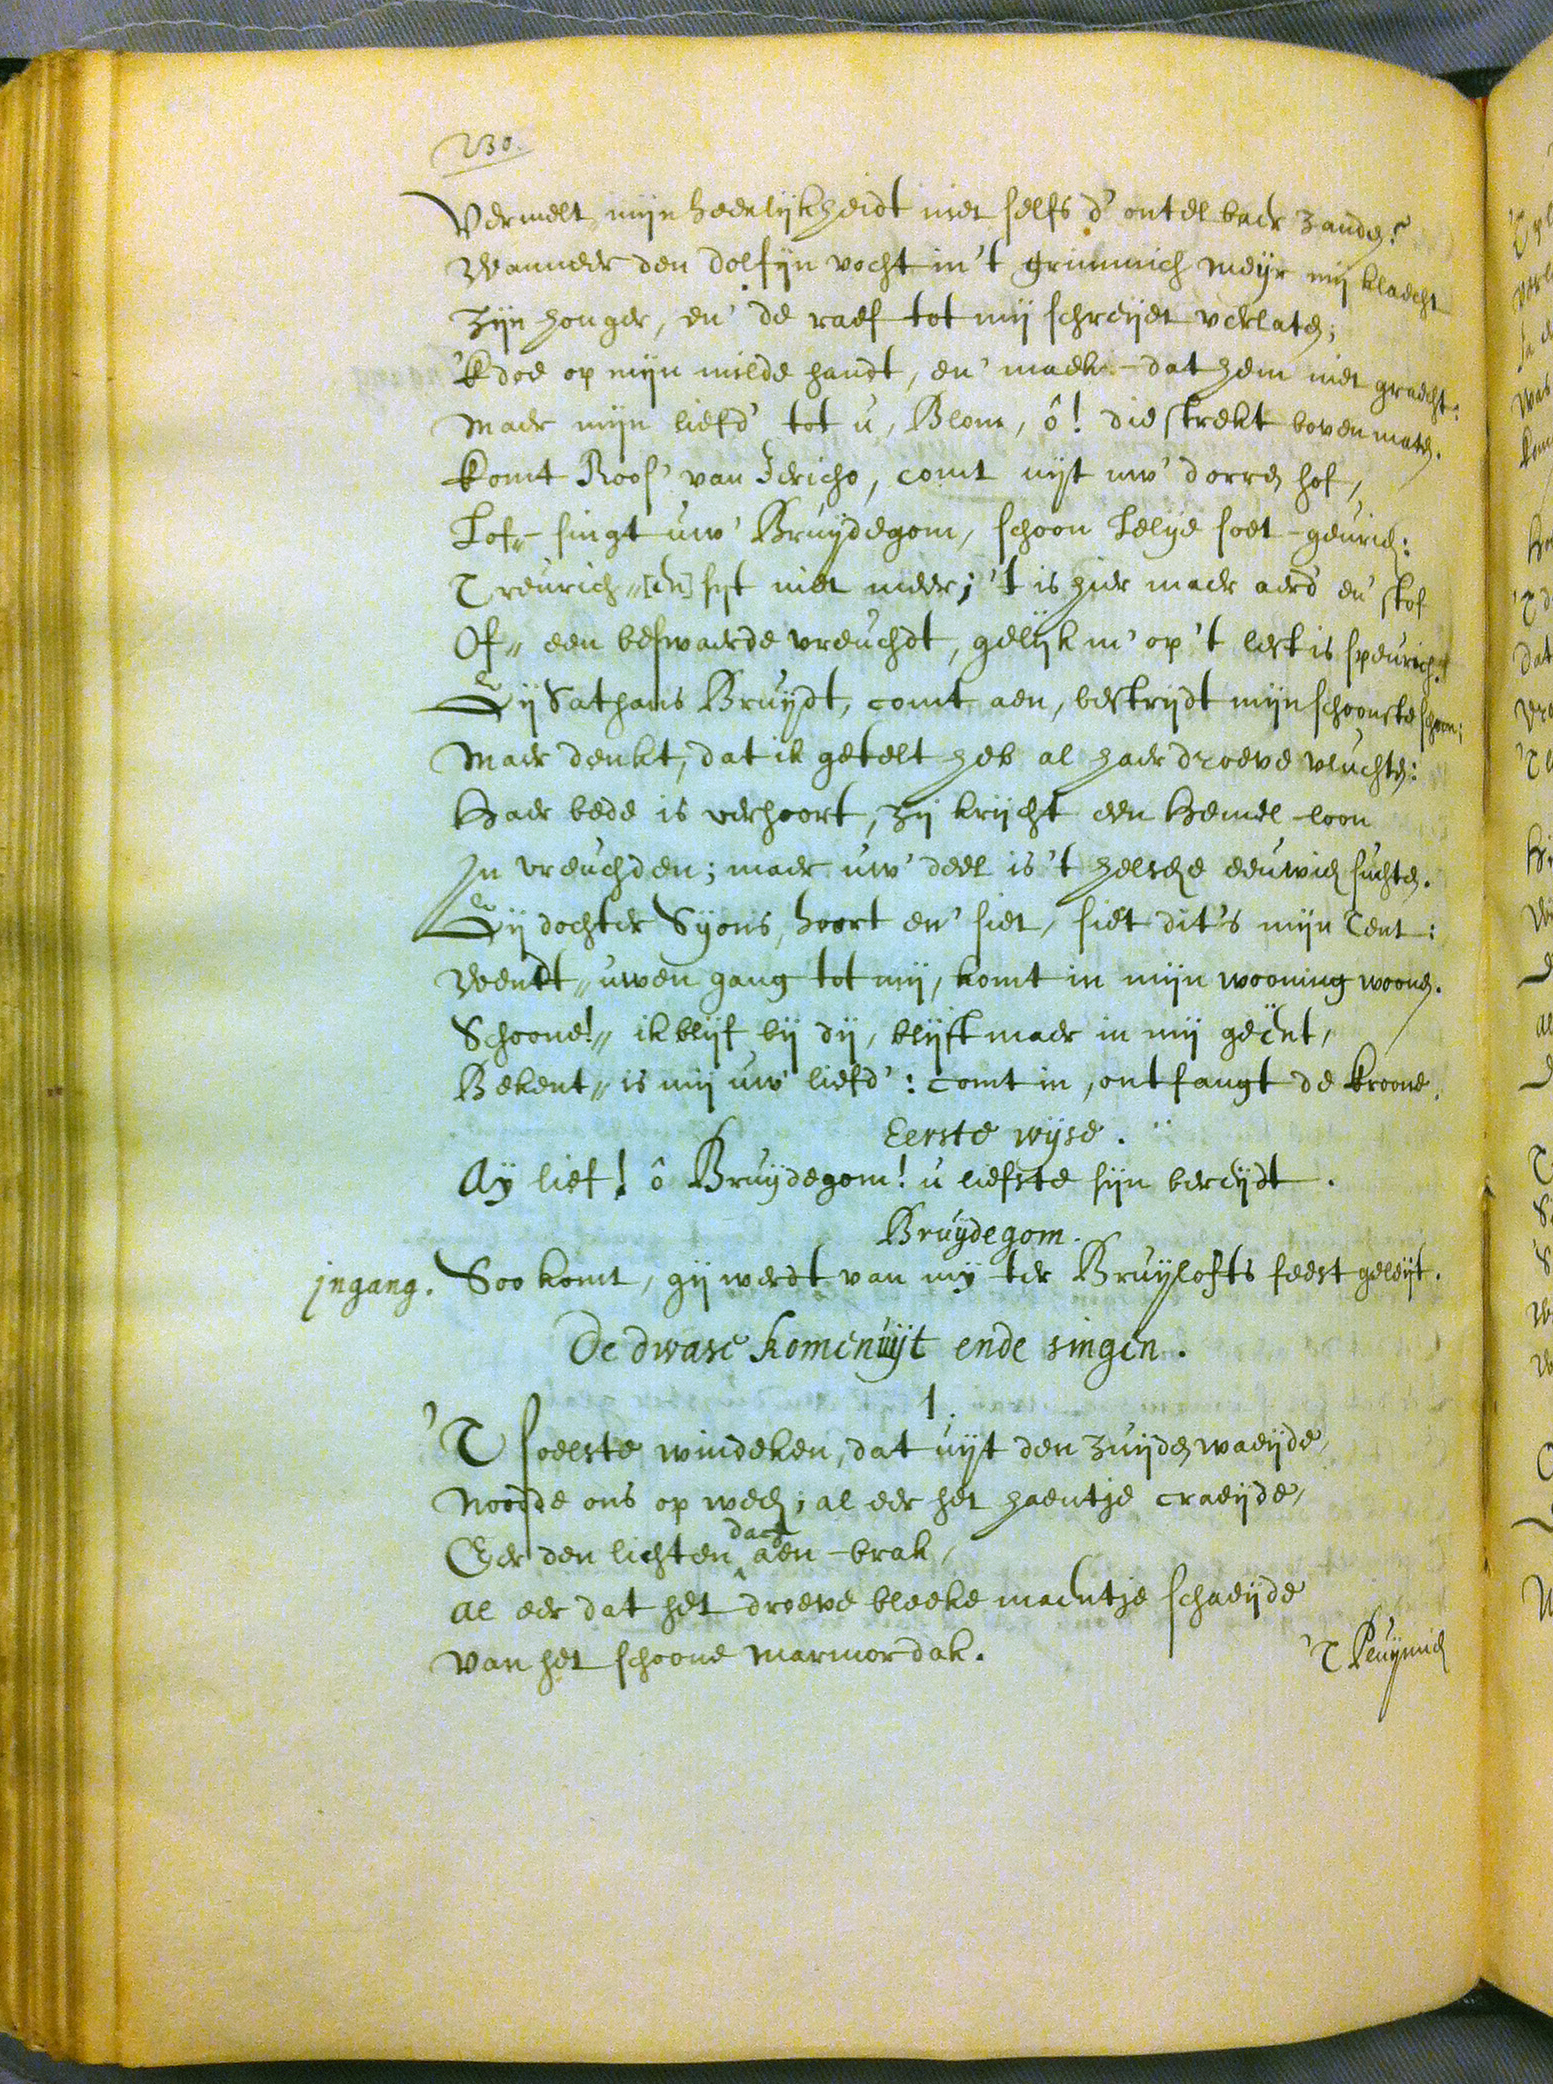 230.
Vermelt mijn heerlijkheidt niet selfs d' ontelbaer zanden?
Wanneer den dolfijn vocht in 't grimmich meyr mij klaecht
Zijn honger, en' de raef tot mij schreijet verlaten;
'k doe op mijn milde handt, en' maek - dat hem niet graecht:
Maer mijn liefd' tot u, Blom, ô! die strekt boven maten.
Komt Roos' van Jericho, comt uijt uw' dorren hof,
Lof,,- singt uw' Bruijdegom, schoon Lelije soet - geurich:
Treurich,, [en] sijt niet meer; 't is hier maer aerd' en' stof
Of,, een beswaerde vreuchdt, gelijk m' op 't lest is speurich.
Gij Sathans Bruijdt, comt aen, bestrijdt mijn schoonste schoon;
Maer denkt, dat ik getelt heb al haer droeve vluchten:
Haer bede is verhoort, zij krijcht een Hemel-loon
In vreuchden; maer uw' deel is 't helsche eeuwich suchten.
Gij dochter Syons, hoort en' siet, siet dit's mijn Tent:
Wendt,, uwen gang tot mij, komt in mijn wooning woonen.
Schoone!,, ik blijf bij dij, blijft maer in mij geënt,
Bekent,, is mij uw' liefd': comt in, ontfangt de kroone.
Eerste wijse.
Aij lief! ô Bruijdegom! u liefste sijn bereijdt.
Bruijdegom.
jngang. Soo komt, gij werdt van mij ter Bruijlofts feest geleijt.
De dwase komen uijt ende singen.
1.
'T soelste windeken, dat uijt den zuijden waeijde,
Noodde ons op wech; al eer het haentje craeijde,
Eer den lichten dach aen-brak,
Al eer dat het droeve bleeke maentje schaeijde
Van het schoone marmor dak.
'T Peuijnich